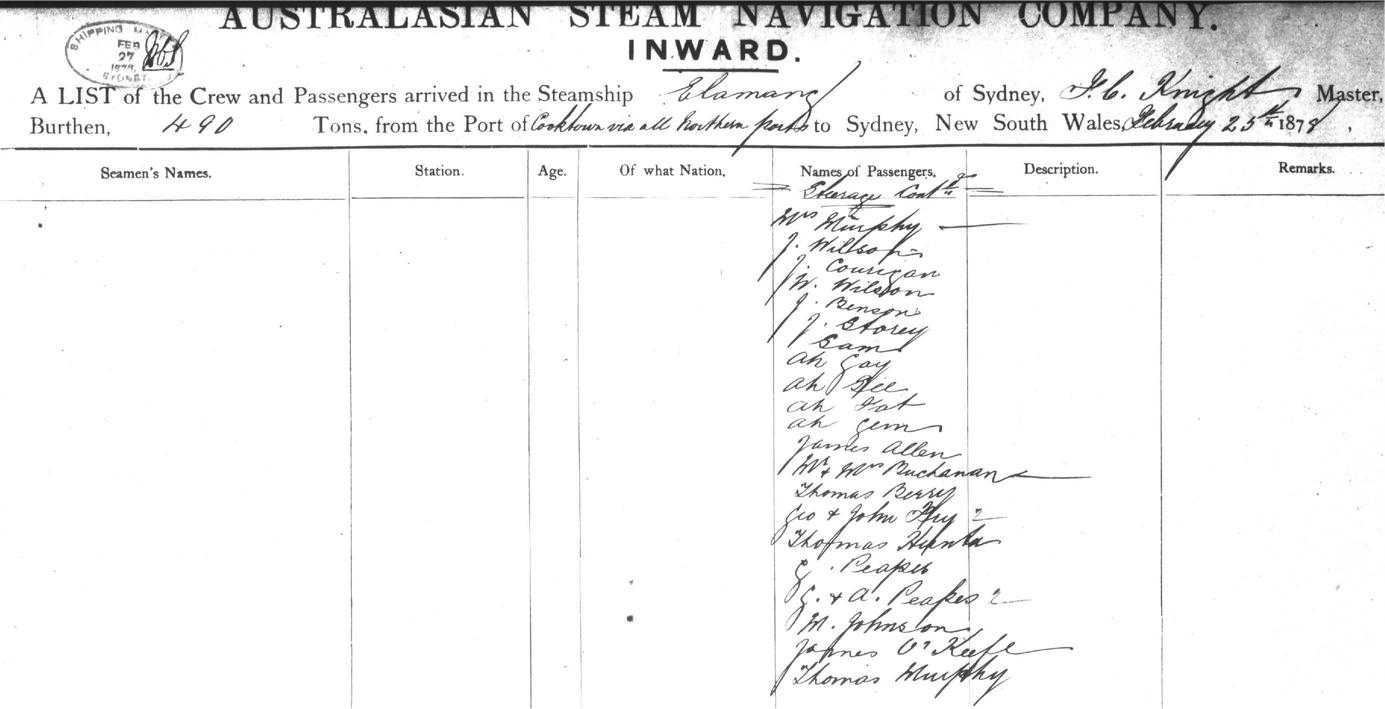 AUSTRALASIAN STEAM NAVIGATION COMPANY.
SHIPPING
FEB
27
SYDNEY
INWARD.
A LIST of the Crew and Passengers arrived in the Steamship Elamang of Sydney, F.C. Knight Master,
Burthen, 490 Tons, from the Port of Cooktown via all Northern ports to Sydney, New South Wales, February 25th 1879,
Seamen's Names. Station. Age. Of what Nation, Names of Passengers, Description. Remarks.
Steerage Contd
Mrs Murphy
J. Willson
J. Courigan
W. Wilson
J. Benson
J. Storey
Sam
Ah Gay
Ah
Ah Fat
Ah Gem
James Allen
Mr & Mrs Buchanan
Thomas Berry
Geo & John Fry 2
Thomas Hunta
G. Peapes
G. & A. Peapes 2
M. Johnson
James O'Keefe
Thomas Murphy